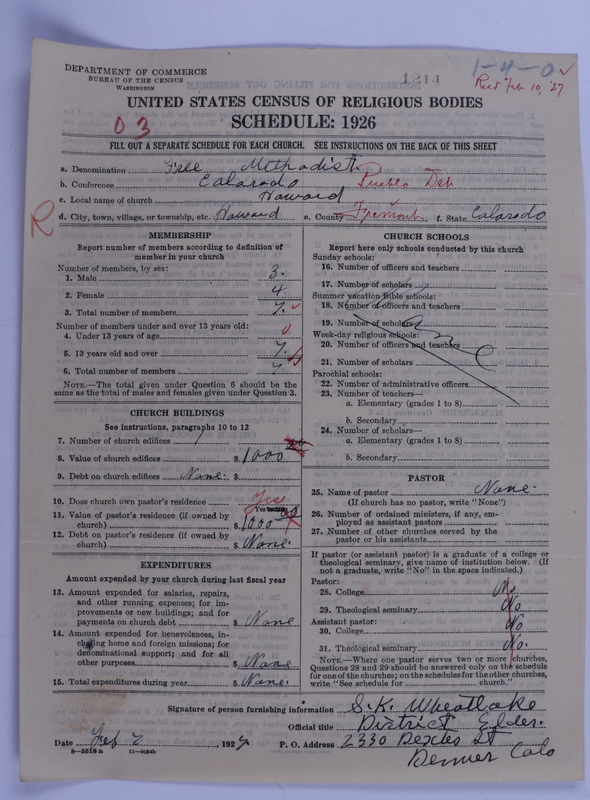 DEPARTMENT OF COMMERCE
BUREAU OF THE CENSUS
WASHINGTON
1214
1-4-0
Rec'd Feb 10, '27
UNITED STATES CENSUS OF RELIGIOUS BODIES
03
SCHEDULE: 1926
FILL OUT A SEPARATE SCHEDULE FOR EACH CHURCH. SEE INSTRUCTIONS ON THE BACK OF THIS SHEET
a. Denomination Free Methodist
b. Conference Colarado Pueblo Dst
c. Local name of church Howard
R
d. City, town, village, or township, etc. Howard e. County Fremont f. State Colarado
MEMBERSHIP
Report number of members according to definition of
member in your church
Number of members, by sex:
1. Male 3.
2. Female 4
3. Total number of members 7.
Number of members under and over 13 years old:
4. Under 13 years of age 0
5. 13 years old and over 7.
6. Total number of members 7
NOTE.—The total given under Question 6 should be
same as the total of males and females given under Question 3.
CHURCH BUILDINGS
See instructions, paragraphs 10 to 12
7. Number of church edifices 1
8. Value of church edifices $ 1000
9. Debt on church edifices None. $
10. Does church own pastor's residence Yes
Yes
11. Value of pastor's residence (if owned by
church) $ 1000
12. Debt on pastor's residence (if owned by
church) $ None.
EXPENDITURES
Amount expended by your church during last fiscal year
13. Amount expended for salaries, repairs,
and other running expenses; for im-
provements or new buildings; and for
payments on church debt $ None
14. Amount expended for benevolences, in-
cluding home and foreign missions; for
denominational support; and for all
other purposes $ None
15. Total expenditures during year $ None.
CHURCH SCHOOLS
Report here only schools conducted by this church
Sunday schools:
16. Number of officers and teachers
17. Number of scholars
Summer vacation Bible schools:
18. Number of officers and teachers
19. Number of scholars
Week-day religious schools:
20. Number of officers and teachers
21. Number of scholars
Parochial schools:
22. Number of administrative officers
23. Number of teachers—
a. Elementary (grades 1 to 8)
b. Secondary
24. Number of scholars—
a. Elementary (grades 1 to 8)
b. Secondary
PASTOR
25. Name of pastor None.
(If church has no pastor, write "None")
26. Number of ordained ministers, if any, em-
ployed as assistant pastors
27. Number of other churches served by the
pastor or his assistants
If pastor (or assistant pastor) is a graduate of a college or
theological seminary, give name of institution below. (If
not a graduate, write "No" in the space indicated.)
Pastor:
28. College No
29. Theological seminary No
Assistant pastor:
30. College No
31. Theological seminary No.
NOTE.—Where one pastor serves two or more churches,
Questions 28 and 29 should be answered only on the schedule
for one of the churches; on the schedules for the other churches,
write "See schedule for church."
Signature of person furnishing information S.K. Wheatlake
Official title District Elder.
Date Feb 2, 1927 P. O. Address 2330 Dexter St
8—5518a 11—9024b
Denver Colo